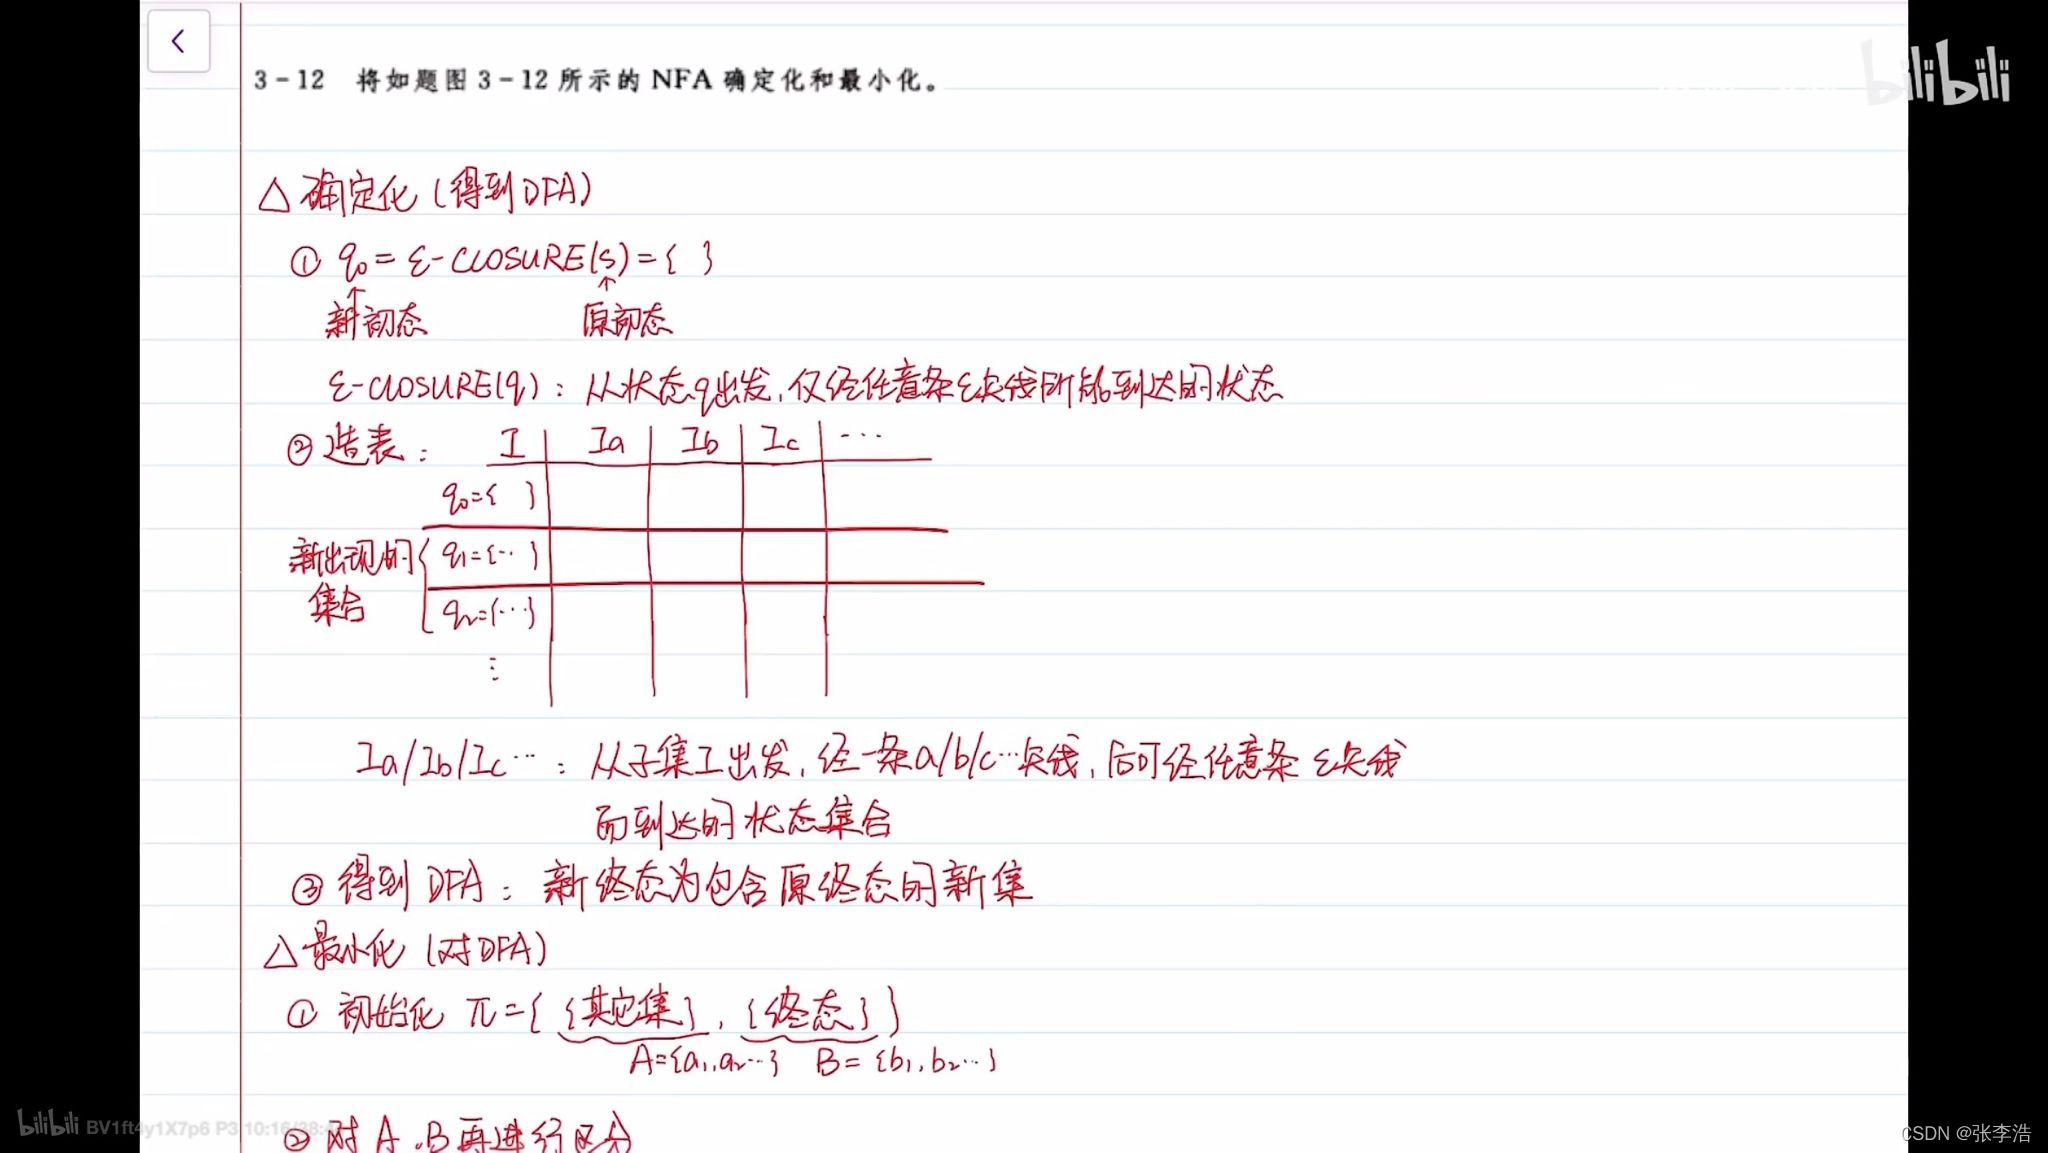 bilibili
3-12 将如题图 3-12 所示的 NFA 确定化和最小化。
△ 确定化 (得到DFA)
① q₀ = ε-CLOSURE(s) = { }
新初态 原初态
ε-CLOSURE(q) : 从状态q出发, 仅经任意条ε矢线所能到达的状态
② 造表 : I Ia Ib Ic ···
q₀={ }
新出现的集合 q₁={··}
q₂={···}
⋮
Ia/Ib/Ic··· : 从子集I出发, 经一条a/b/c···矢线, 后可经任意条ε矢线
而到达的状态集合
③ 得到 DFA : 新终态为包含原终态的新集
△ 最小化 (对DFA)
① 初始化 π={ {其它集}, {终态} }
A={a₁,a₂···} B={b₁,b₂···}
② 对 A,B再进行区分
bilibili BV1ft4y1X7p6 P3 10:16/38:4
CSDN @张李浩